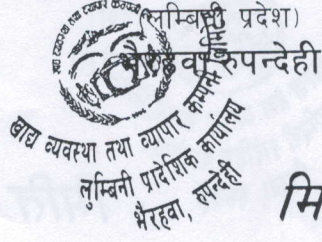 (लुम्बिनी प्रदेश)
भैरहवा रुपन्देही
खाद्य व्यवस्था तथा व्यापार कम्पनी
लुम्बिनी प्रादेशिक कार्यालय
भैरहवा, रुपन्देही
मि